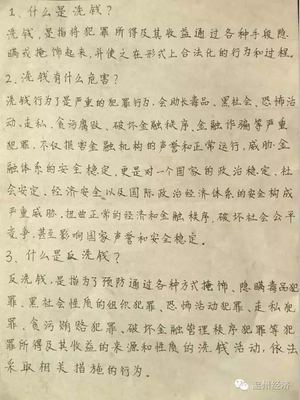 1、什么是洗钱？
洗钱,是指将犯罪所得及其收益通过各种手段隐
瞒或掩饰起来,并使之在形式上合法化的行为和过程。
2、洗钱有什么危害？
洗钱行为了是严重的犯罪行为,会助长毒品、黑社会、恐怖活
动、走私、贪污腐败、破坏金融秩序、金融诈骗等严重
犯罪,不仅损害金融机构的声誉和正常运行,威胁金
融体系的安全稳定,更是对一个国家的政治稳定、社
会安定、经济安全以及国际政治经济体系的安全构成
严重威胁,扭曲正常的经济和金融秩序,破坏社会公平
竞争,甚至影响国家声誉和安全稳定。
3、什么是反洗钱？
反洗钱,是指为了预防通过各种方式掩饰、隐瞒毒品犯
罪、黑社会性质的组织犯罪、恐怖活动犯罪、走私犯
罪、贪污贿赂犯罪、破坏金融管理秩序犯罪等犯
罪所得及其收益的来源和性质的洗钱活动,依法
采取相关措施的行为。
温州经济